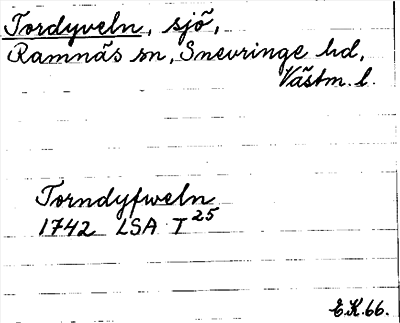 Tordyveln, sjö,
Ramnäs sn, Snevringe hd,
Västm. l.
Torndyfweln
1742 LSA T 25
E.K. 66.